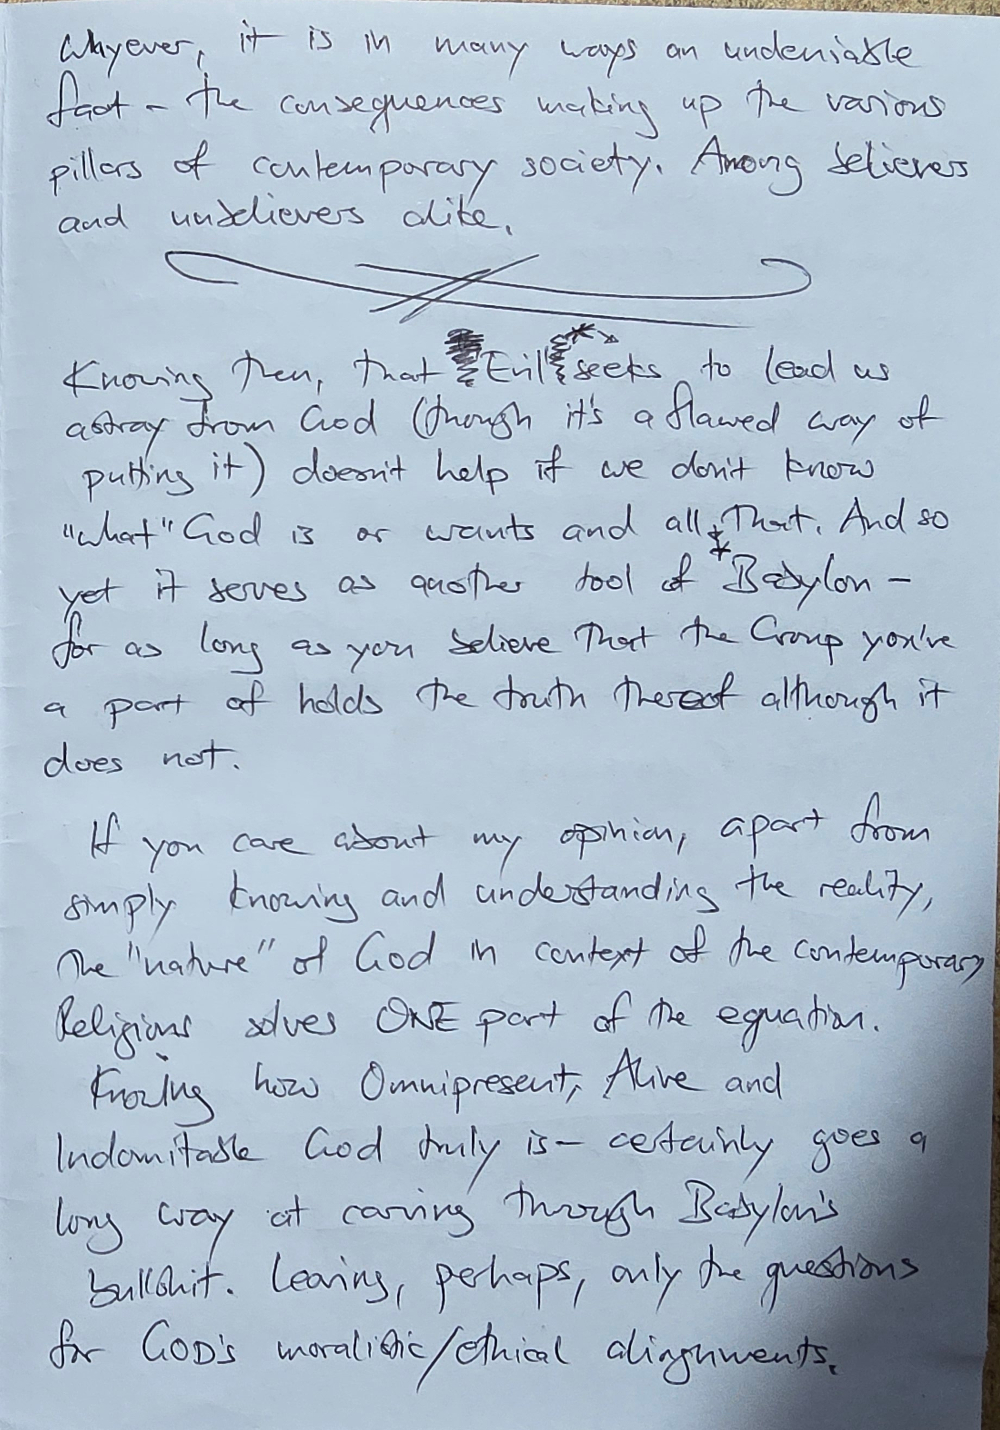 Whyever, it is in many ways an undeniable
fact – the consequences making up the various
pillars of contemporary society. Among believers
and unbelievers alike.
Knowing then, that Evil seeks to lead us
astray from God (though it's a flawed way of
putting it) doesn't help if we don't know
"what" God is or wants and all That. And so
yet it serves as another tool of Babylon –
for as long as you believe that the Group you've
a part of holds the truth thereof although it
does not.
If you care about my opinion, apart from
simply knowing and understanding the reality,
the "nature" of God in context of the contemporary
Religions solves ONE part of the equation.
Knowing how Omnipresent, Alive and
Indomitable God truly is – certainly goes a
long way at carving through Babylon's
bullshit. Leaving, perhaps, only the questions
for GOD's moralistic/ethical alingnments.